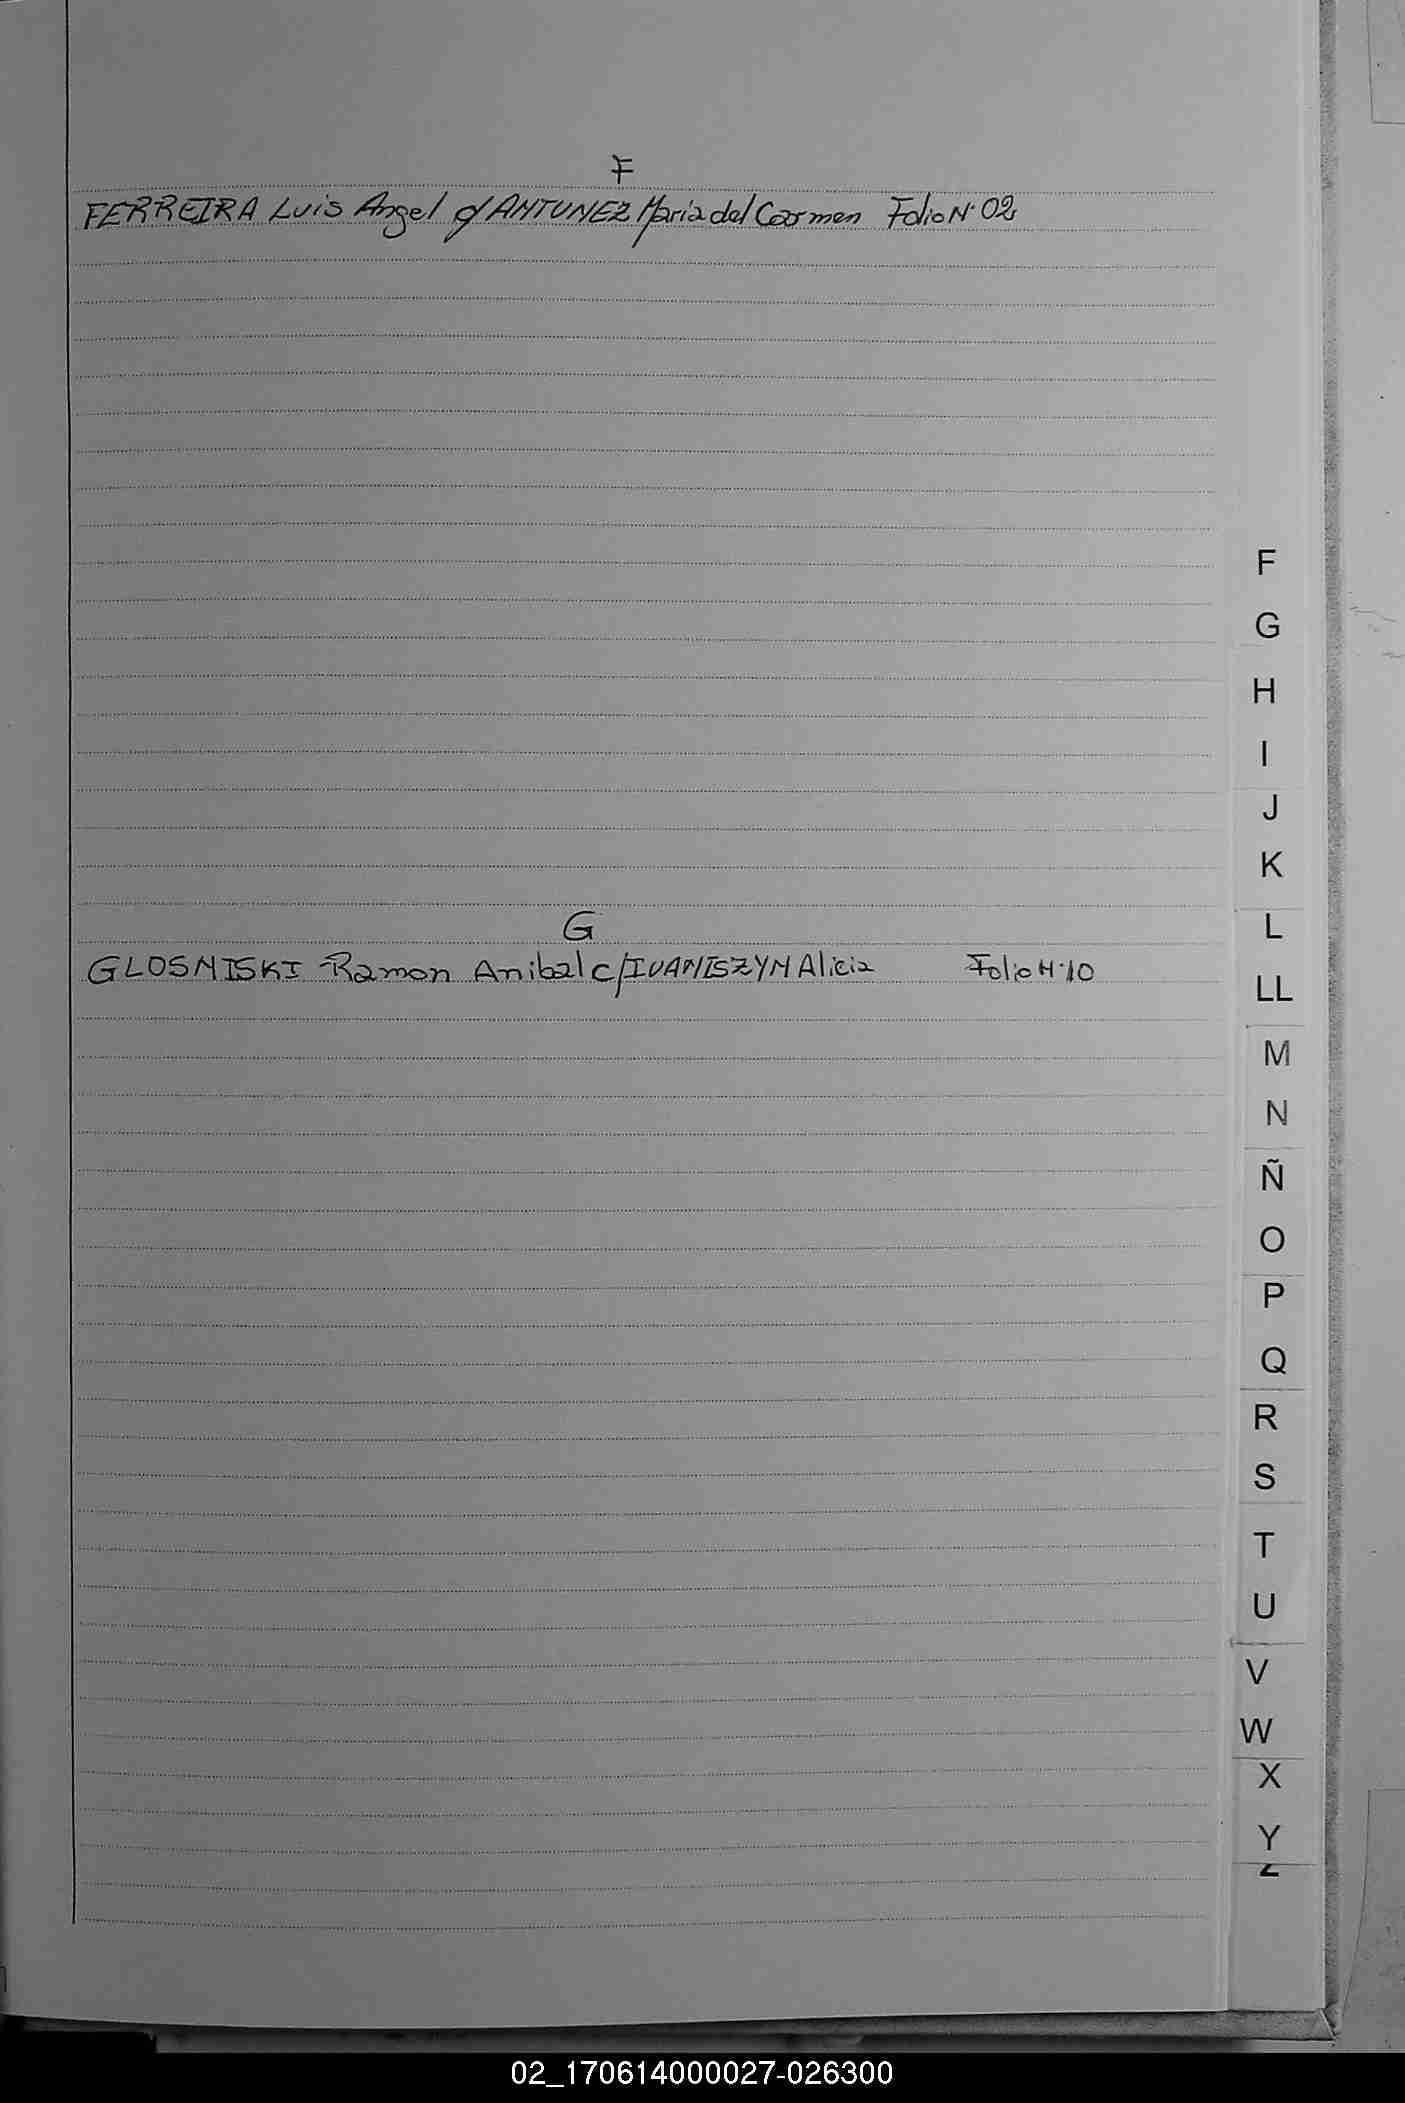 F
FERREIRA Luis Angel c/ANTUNEZ Maria del Carmen Folio N° 02
G
GLOSNISKI Ramon Anibal c/IVANISZYN Alicia Folio N° 10
F
G
H
I
J
K
L
LL
M
N
Ñ
O
P
Q
R
S
T
U
V
W
X
Y
Z
02_170614000027-026300